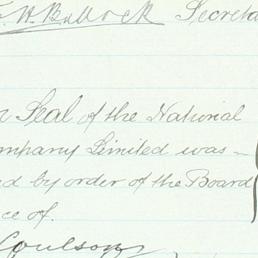 W. Bullock Secreta
Seal of the National
ompany Limited was
ed by order of the Board
ce of.
Coulson